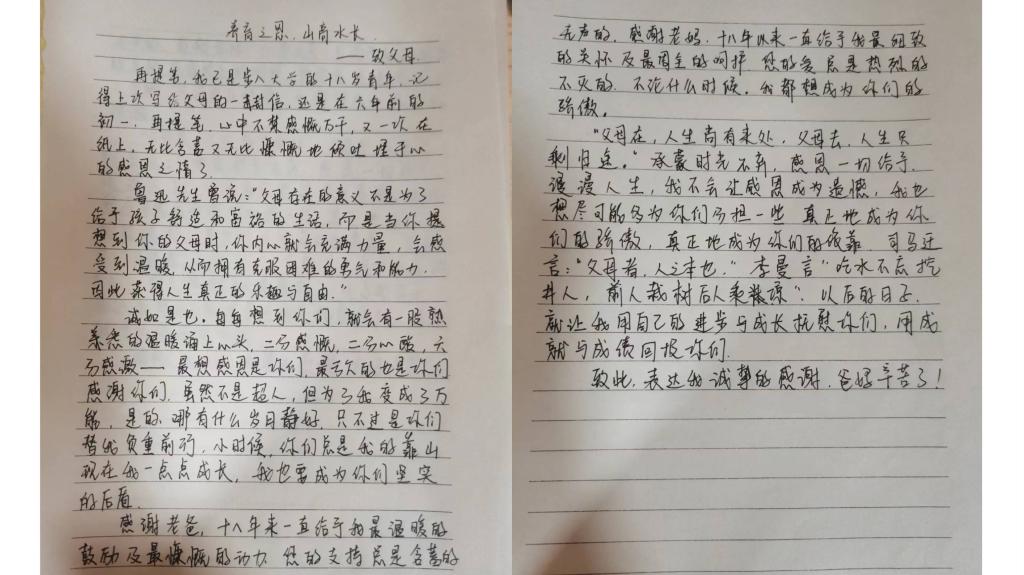 养育之恩,山高水长
——致父母
再提笔,我已是步入大学的十八岁青年,记
得上次写给父母的一封信,还是在六年前的
初一,再提笔,心中不禁感慨万千,又一次在
纸上,无比含蓄又无比慷慨地倾吐埋于心
的感恩之情了
鲁迅先生曾说:“父母存在的意义不是为了
给予孩子舒适和富裕的生活,而是当你提
想到你的父母时,你内心就会充满力量,会感
受到温暖,从而拥有克服困难的勇气和能力.
因此获得人生真正的乐趣与自由.”
诚如是也,每每想到你们,就会有一股熟
悉的温暖涌上心头,二分感慨,二分心酸,六
分感激——最想感恩是你们,最亏欠的也是你们
感谢你们.虽然不是超人,但为了我变成了万
能,是的,哪有什么岁月静好,只不过是你们
替我负重前行,小时候,你们总是我的靠山
现在我一点点成长,我也要成为你们坚实
的后盾.
感谢老爸,十八年来一直给予我最温暖的
鼓励及最慷慨的动力.您的支持总是含蓄的
无声的,感谢老妈,十八年以来一直给予我最细致
的关怀及最周全的呵护 您的爱总是热烈的
不灭的,不论什么时候,我都想成为你们的
骄傲。
“父母在,人生尚有来处,父母去,人生只
剩归途。”承蒙时光不弃,感恩一切给予.
漫漫人生,我不会让感恩成为遗憾,我也
想尽可能多为你们分担一些 真正地成为你
们的骄傲,真正地成为你们的依靠 司马迁
言:“父母者,人之本也.”李曼言“吃水不忘挖
井人,前人栽树后人乘凉”.以后的日子.
就让我用自己的进步与成长抚慰你们,用成
就与成绩回报你们.
致此,表达我诚挚的感谢,爸妈辛苦了!